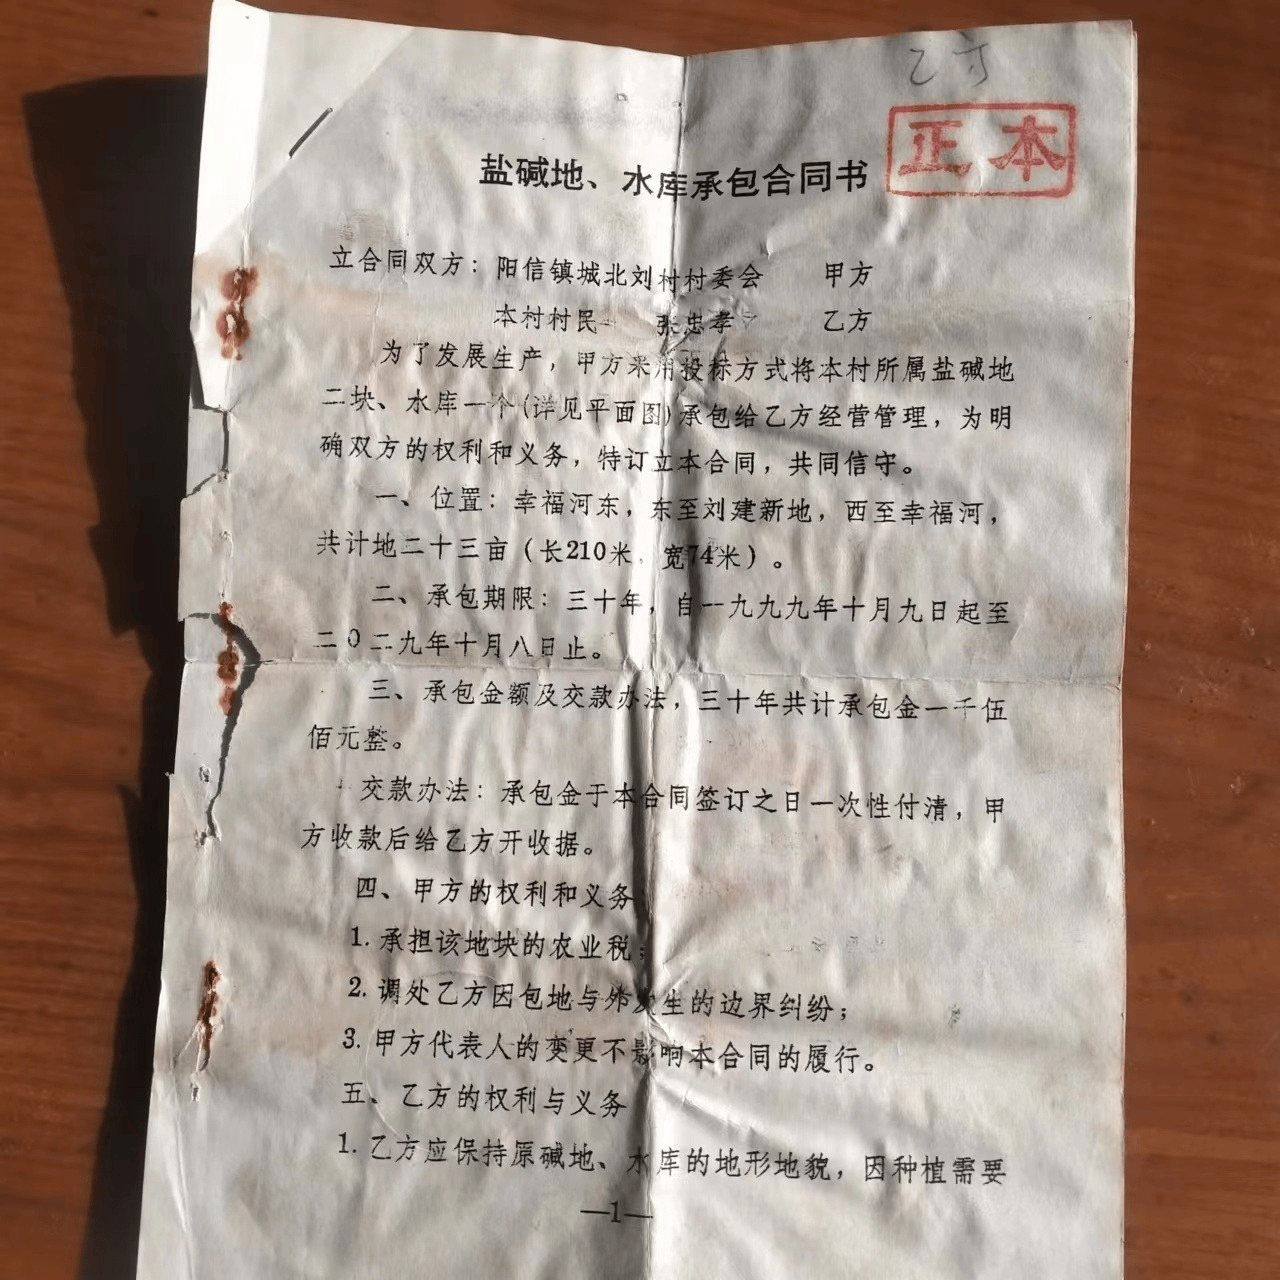 乙方
正本
盐碱地、水库承包合同书
立合同双方：阳信镇城北刘村村委会 甲方
本村村民 张忠孝 乙方
为了发展生产，甲方采用投标方式将本村所属盐碱地
二块、水库一个(详见平面图)承包给乙方经营管理，为明
确双方的权利和义务，特订立本合同，共同信守。
一、位置：幸福河东，东至刘建新地，西至幸福河，
共计地二十三亩（长210米，宽74米）。
二、承包期限：三十年，自一九九九年十月九日起至
二0二九年十月八日止。
三、承包金额及交款办法，三十年共计承包金一千伍
佰元整。
交款办法：承包金于本合同签订之日一次性付清，甲
方收款后给乙方开收据。
四、甲方的权利和义务
1.承担该地块的农业税；
2.调处乙方因包地与外发生的边界纠纷；
3.甲方代表人的变更不影响本合同的履行。
五、乙方的权利与义务
1.乙方应保持原碱地、水库的地形地貌，因种植需要
—1—